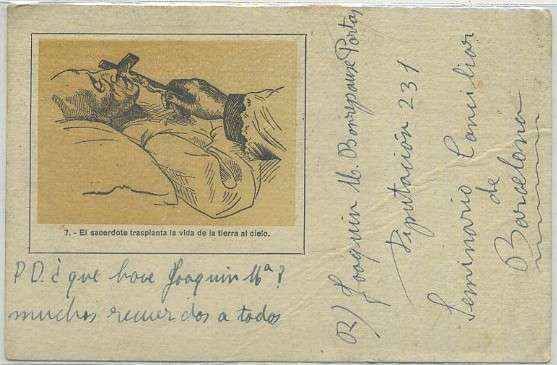 7. - El sacerdote trasplanta la vida de la tierra al cielo.
P.D. ¿ que hace Joaquin Mª?
muchos recuerdos a todos
R/ Joaquin M. Bonrepaux Portas
Diputación 231
Seminario Conciliar
de
Barcelona